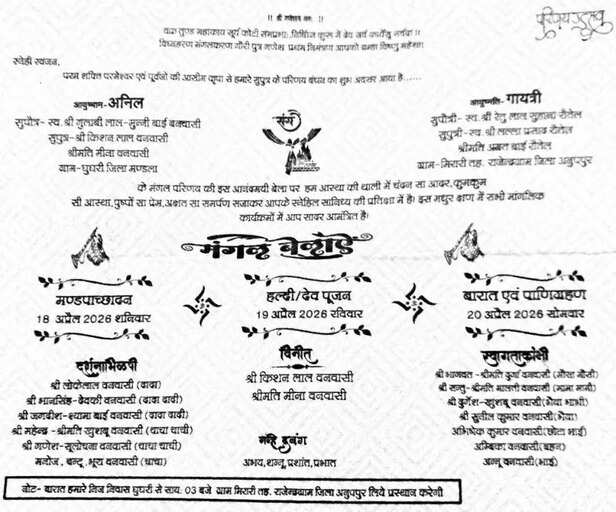 ॥ श्री गणेशाय नमः ॥
परिणय उत्सव
वक्र तुण्ड महाकाय सूर्य कोटी समप्रभाः, निर्विघ्न कुरू मे देव सर्व कार्येसु सर्वदा।
विघ्नहरण मंगलकरण गौरी पुत्र गणेश प्रथम निमंत्रण आपको ब्रम्हा विष्णु महेश।
स्नेही स्वजन,
परम शक्ति परमेश्वर एवं पूर्वजो की आसीम कृपा से हमारे सुपुत्र के परिणय बंधन का शुभ अवसर आया है......
आयुष्मान-अनिल
सुपौत्र- स्व. श्री गुलाबी लाल-मुन्नी बाई बनवासी
सुपुत्र-श्री किशन लाल वनवासी
श्रीमति मीना वनवासी
ग्राम-घुघरी जिला मण्डला
संग
आयुष्मति-गायत्री
सुपौत्री- स्व. श्री रेतु लाल सुहाना रौतेल
सुपुत्री-स्व. श्री लल्ला प्रसाद रौतेल
श्रीमति अमृत बाई रौतेल
ग्राम-मिरारी तह. राजेन्द्रग्राम जिला अनुपपुर
के मंगल परिणय की इस आनंदमयी बेला पर हम आस्था की थाली में चंदन सा आदर, कुमकुम
सी आस्था, पुष्पों सा प्रेम, अक्षत सा समर्पण सजाकर आपके स्नेहिल सानिध्य की प्रतिक्षा में है। इस मधुर क्षण में सभी मांगलिक
कार्यक्रमों में आप सादर आमंत्रित है।
मंगल बेलाऐं
मण्डपाच्छादन
18 अप्रैल 2026 शनिवार
हल्दी/देव पूजन
19 अप्रैल 2026 रविवार
बारात एवं पाणिग्रहण
20 अप्रैल 2026 सोमवार
दर्शनाभिलाषी
श्री लोकेलाल वनवासी (दादा)
श्री भानसिंह-देवकी वनवासी (दादा दादी)
श्री जगदीश-श्यामा बाई वनवासी (दादा दादी)
श्री महेन्द्र -श्रीमति खुशबू वनवासी (चाचा चाची)
श्री गणेश-सुलोचना वनवासी (चाचा चाची)
मनोज, बन्टू, भूरा वनवासी (चाचा)
विनीत
श्री किशन लाल वनवासी
श्रीमति मीना वनवासी
नन्हे दबंग
अभय, शन्नू, प्रशांत, प्रभात
स्वागताकांक्षी
श्री भागवत -श्रीमति दुर्गा वनवासी (मौसा मौसी)
श्री सन्तु -श्रीमति मालती वनवासी (मामा मामी)
श्री दुर्गेश-खुशबू वनवासी (भैया भाभी)
श्री सुनील कुमार वनवासी (भैया)
अभिषेक कुमार वनवासी (छोटा भाई)
अम्बिका वनवासी (बहन)
अन्नू वनवासी (भाई)
नोट- बारात हमारे निज निवास घुघरी से सायं. 03 बजे ग्राम मिरारी तह. राजेन्द्रग्राम जिला अनुपपुर लिये प्रस्थान करेगी